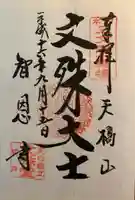 奉拝
天橋山
文殊大士
平成十六年九月十五日
智恩寺